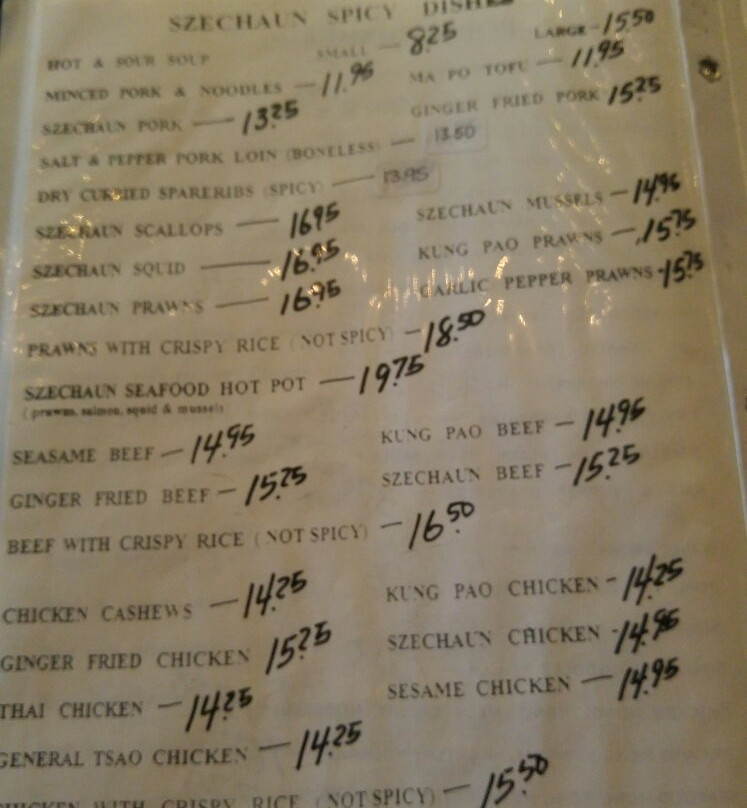 SZECHAUN SPICY DISHES
HOT & SOUR SOUP SMALL — 8.25 LARGE - 15.50
MINCED PORK & NOODLES — 11.95 MA PO TOFU — 11.95
SZECHAUN PORK — 13.25 GINGER FRIED PORK 15.25
SALT & PEPPER PORK LOIN (BONELESS) — 13.50
DRY CURRIED SPARERIBS (SPICY) — 13.95
SZECHAUN SCALLOPS — 16.95 SZECHAUN MUSSELS — 14.95
SZECHAUN SQUID — 16.95 KUNG PAO PRAWNS — 15.75
SZECHAUN PRAWNS — 16.95 GARLIC PEPPER PRAWNS - 15.75
PRAWNS WITH CRISPY RICE (NOT SPICY) — 18.50
SZECHAUN SEAFOOD HOT POT — 19.75
(prawns, salmon, squid & mussels)
SEASAME BEEF — 14.95 KUNG PAO BEEF — 14.95
GINGER FRIED BEEF — 15.25 SZECHAUN BEEF — 15.25
BEEF WITH CRISPY RICE (NOT SPICY) — 16.50
CHICKEN CASHEWS — 14.25 KUNG PAO CHICKEN - 14.25
GINGER FRIED CHICKEN 15.25 SZECHAUN CHICKEN - 14.95
THAI CHICKEN — 14.25 SESAME CHICKEN — 14.95
GENERAL TSAO CHICKEN — 14.25
CHICKEN WITH CRISPY RICE (NOT SPICY) — 15.50